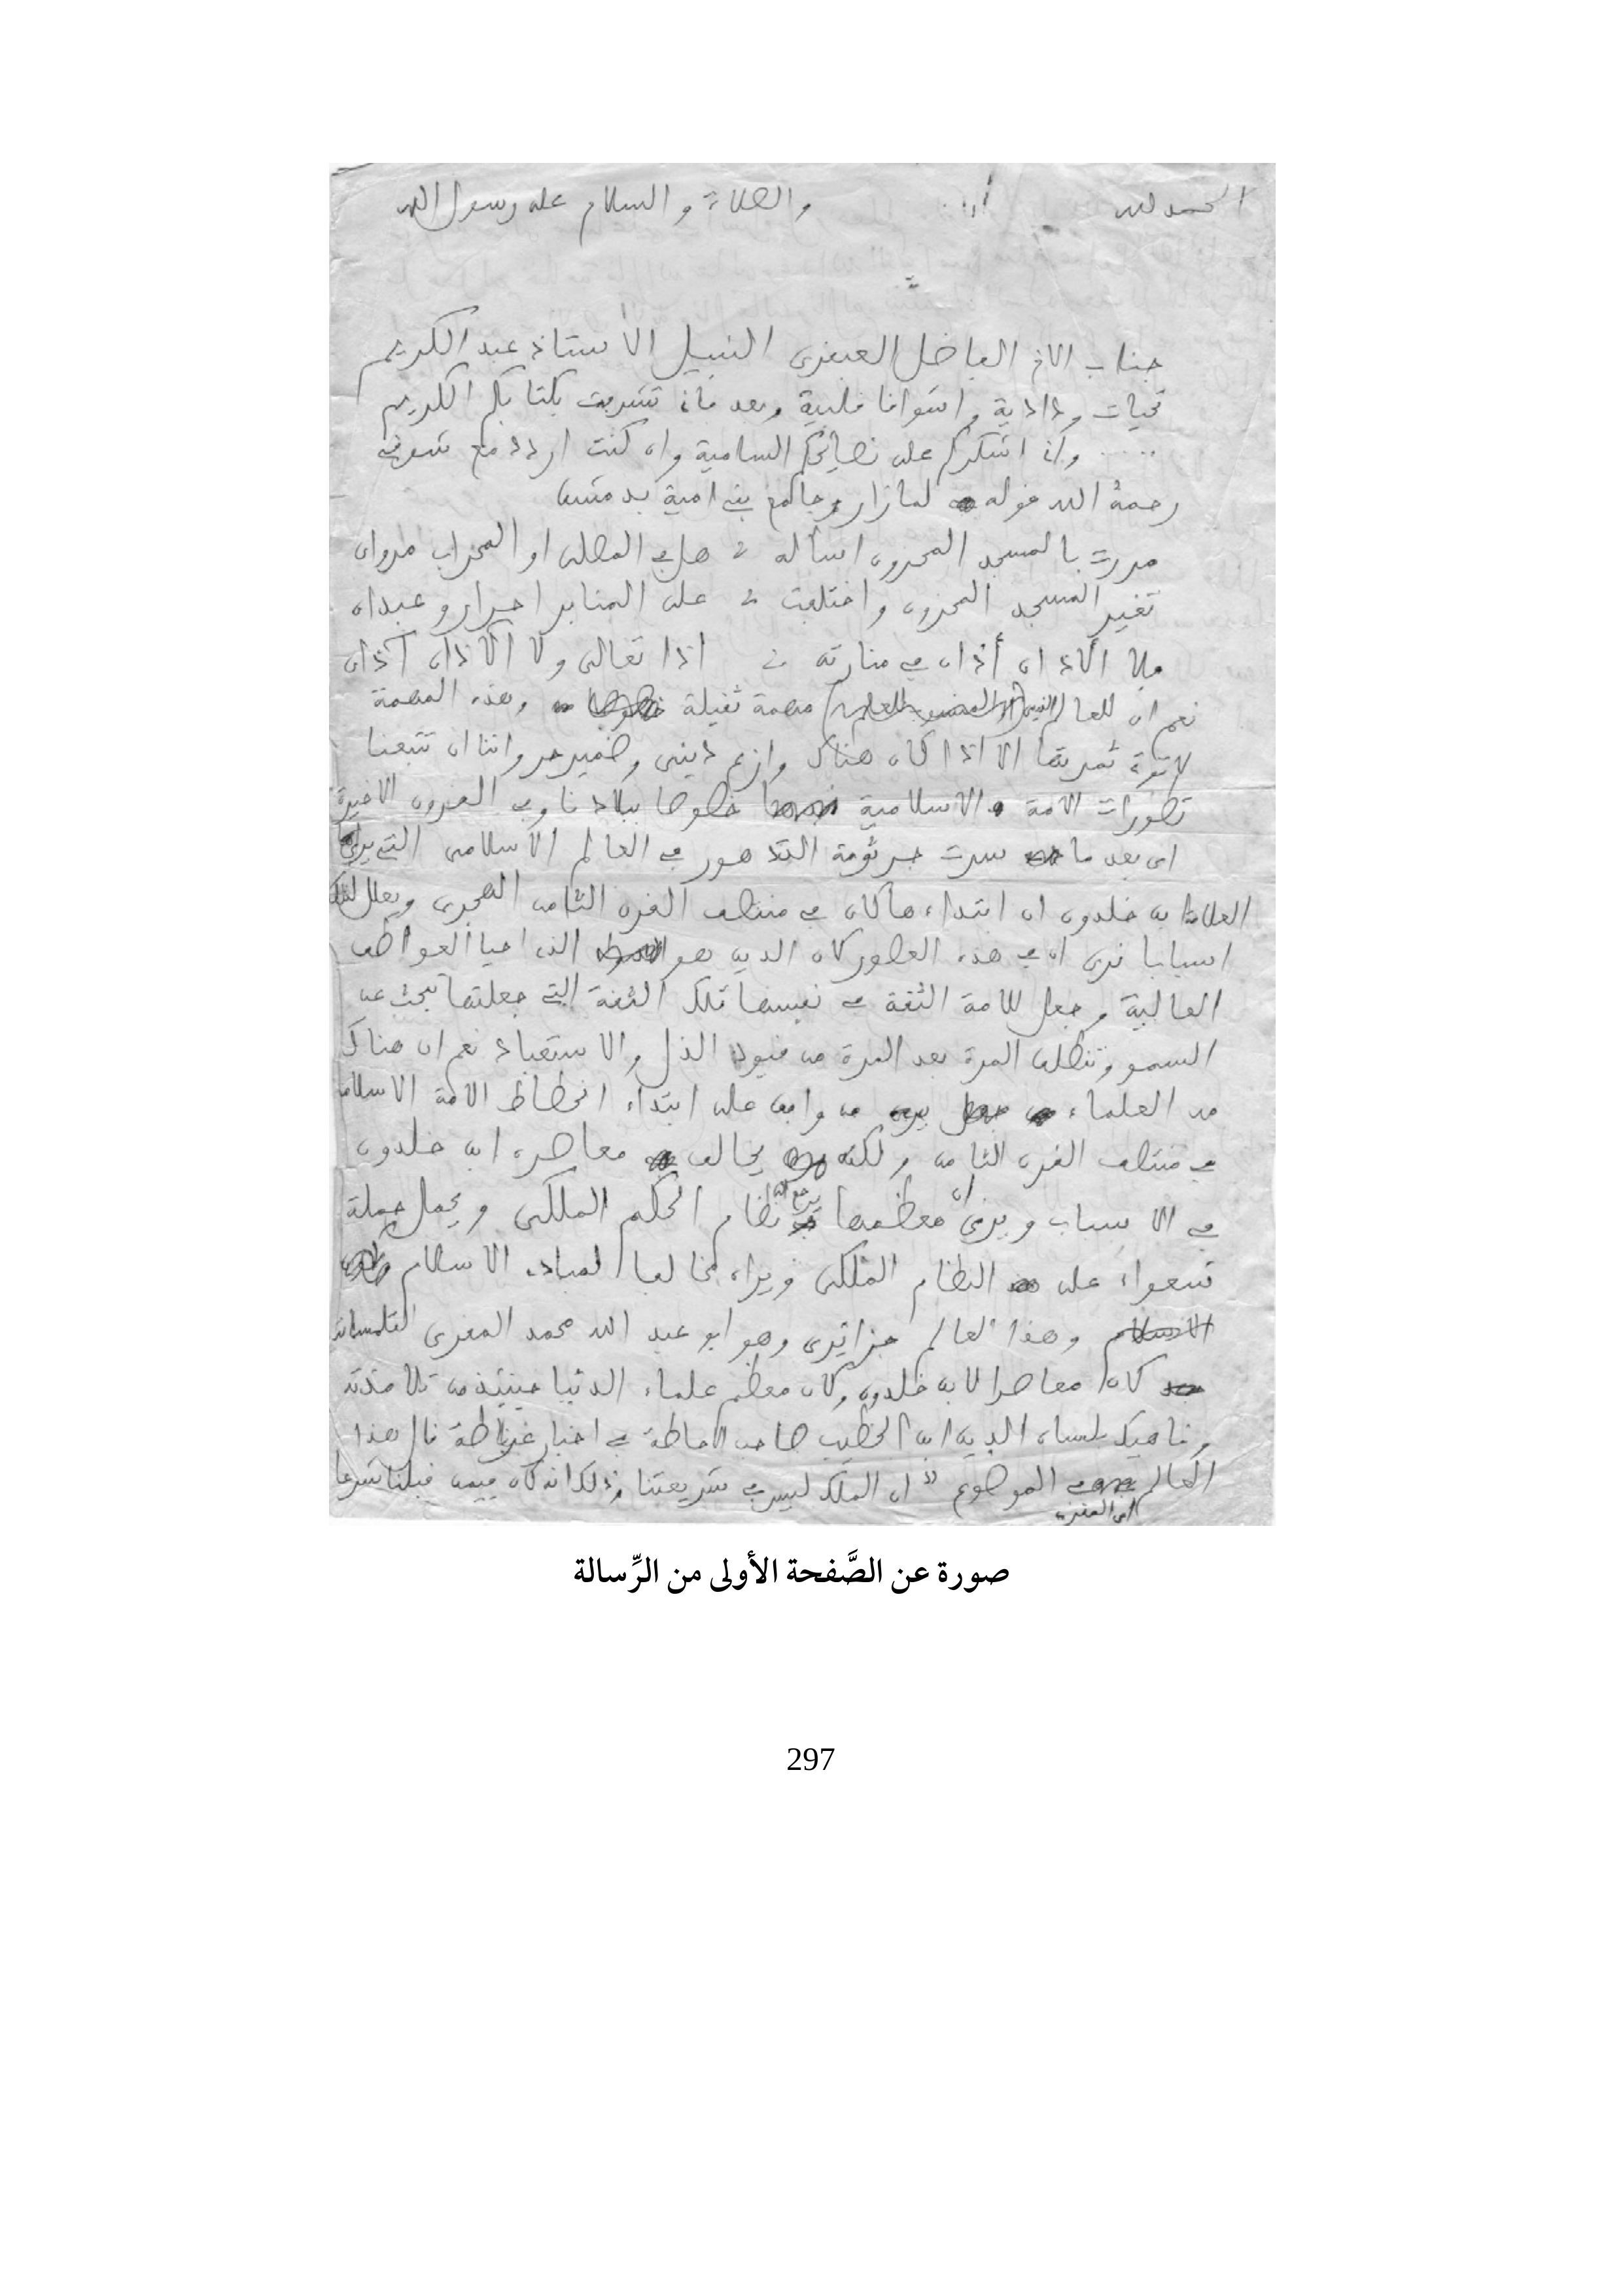 الحمد لله والصلاة والسلام على رسول الله
جناب الاخ الفاضل العبقري النبيل الأستاذ عبد الكريم
تحيات ودادية واشواقا قلبية وبعد فاني تشرفت بكتابكم الكريم
..... واني اشكركم على نصايحكم السامية وان كنت اردد مع شوقي
رحمة الله قوله لما زار جامع بني امية بدمشق
مررت بالمسجد المحزون اسأله هل في المصلى او المحراب مروان
تغير المسجد المحزون واختلفت على المنابر احرار وعبدان
فلا الأذان أذان في منارته اذا تعالى ولا الآذان آذان
نعم ان للعالم مهمة ثقيلة وهذه المهمة
لا تؤتي ثمرتها الا اذا كان هناك وازع ديني وضمير حر واننا ان تتبعنا
تطورات الامة الاسلامية خصوصا ببلادنا وفي القرون الاخيرة
اي بعد ما سرت جرثومة التدهور في العالم الاسلامي التي يرى
العلامة ابن خلدون ان ابتداءها كان في منتصف القرن الثامن الهجري ويعلل لذلك
اسبابا نرى ان في هذه العصور كان الدين هو الذي احيا العواطف
العالية وجعل للامة الثقة في نفسها تلك الثقة التي جعلتها تبحث عن
السمو وتنطلق المرة بعد المرة من قيود الذل والاستعباد نعم ان هناك
من العلماء من وافق على ابتداء انحطاط الامة الاسلامية
في منتصف القرن الثامن ولكنه يخالف معاصره ابن خلدون
في الاسباب ويرى ان معظمها يرجع الى نظام الحكم الملكي ويحمل حملة
شعواء على النظام الملكي ويراه مخالفا لمبادئ الاسلام
وهذا العالم جزائري وهو ابو عبد الله محمد المقري التلمساني
كان معاصرا لابن خلدون وكان معظم علماء الدنيا حينئذ من تلامذته
وناهيك بلسان الدين ابن الخطيب صاحب الاحاطة في اخبار غرناطة قال هذا
العالم اي المقري في الموضوع "ان الملك ليس في شريعتنا وذلك انه كان فيمن قبلنا شرعا
صورة عن الصَّفحة الأولى من الرِّسالة
297